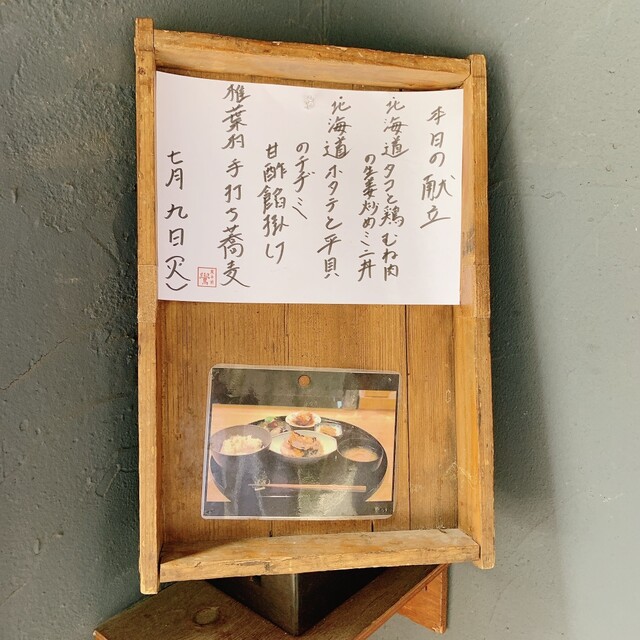 本日の献立
北海道タコと鶏むね肉
の生姜炒めミニ丼
北海道ホタテと平貝
のチヂミ
甘酢餡掛け
椎葉村手打ち蕎麦
七月九日(火)